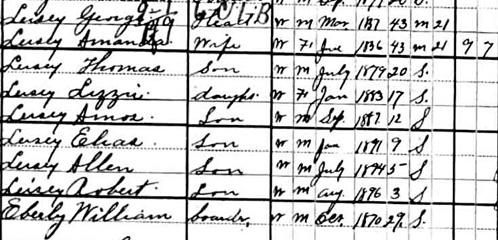 Lusey George W M Mar 187 43 M 21
Lusey Amanda Wife W F 1836 43 m 21 9 7
Lusey Thomas Son W M July 1879 20 S.
Lusey Lizzie daught. W F Jan 1883 17 S.
Lusey Amos. Son W M Sep 1887 12 S
Lusey Elias Son W M Jan 1891 9 S
Lusey Allen Son W M July 1894 5 S
Lusey Robert. Son W M Aug. 1896 3 S
Eberly William boarder, W M Oct. 1870 29. S.